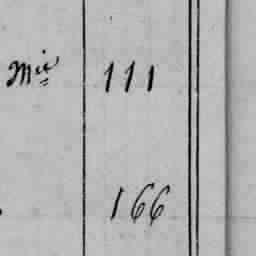 Mie 111
166